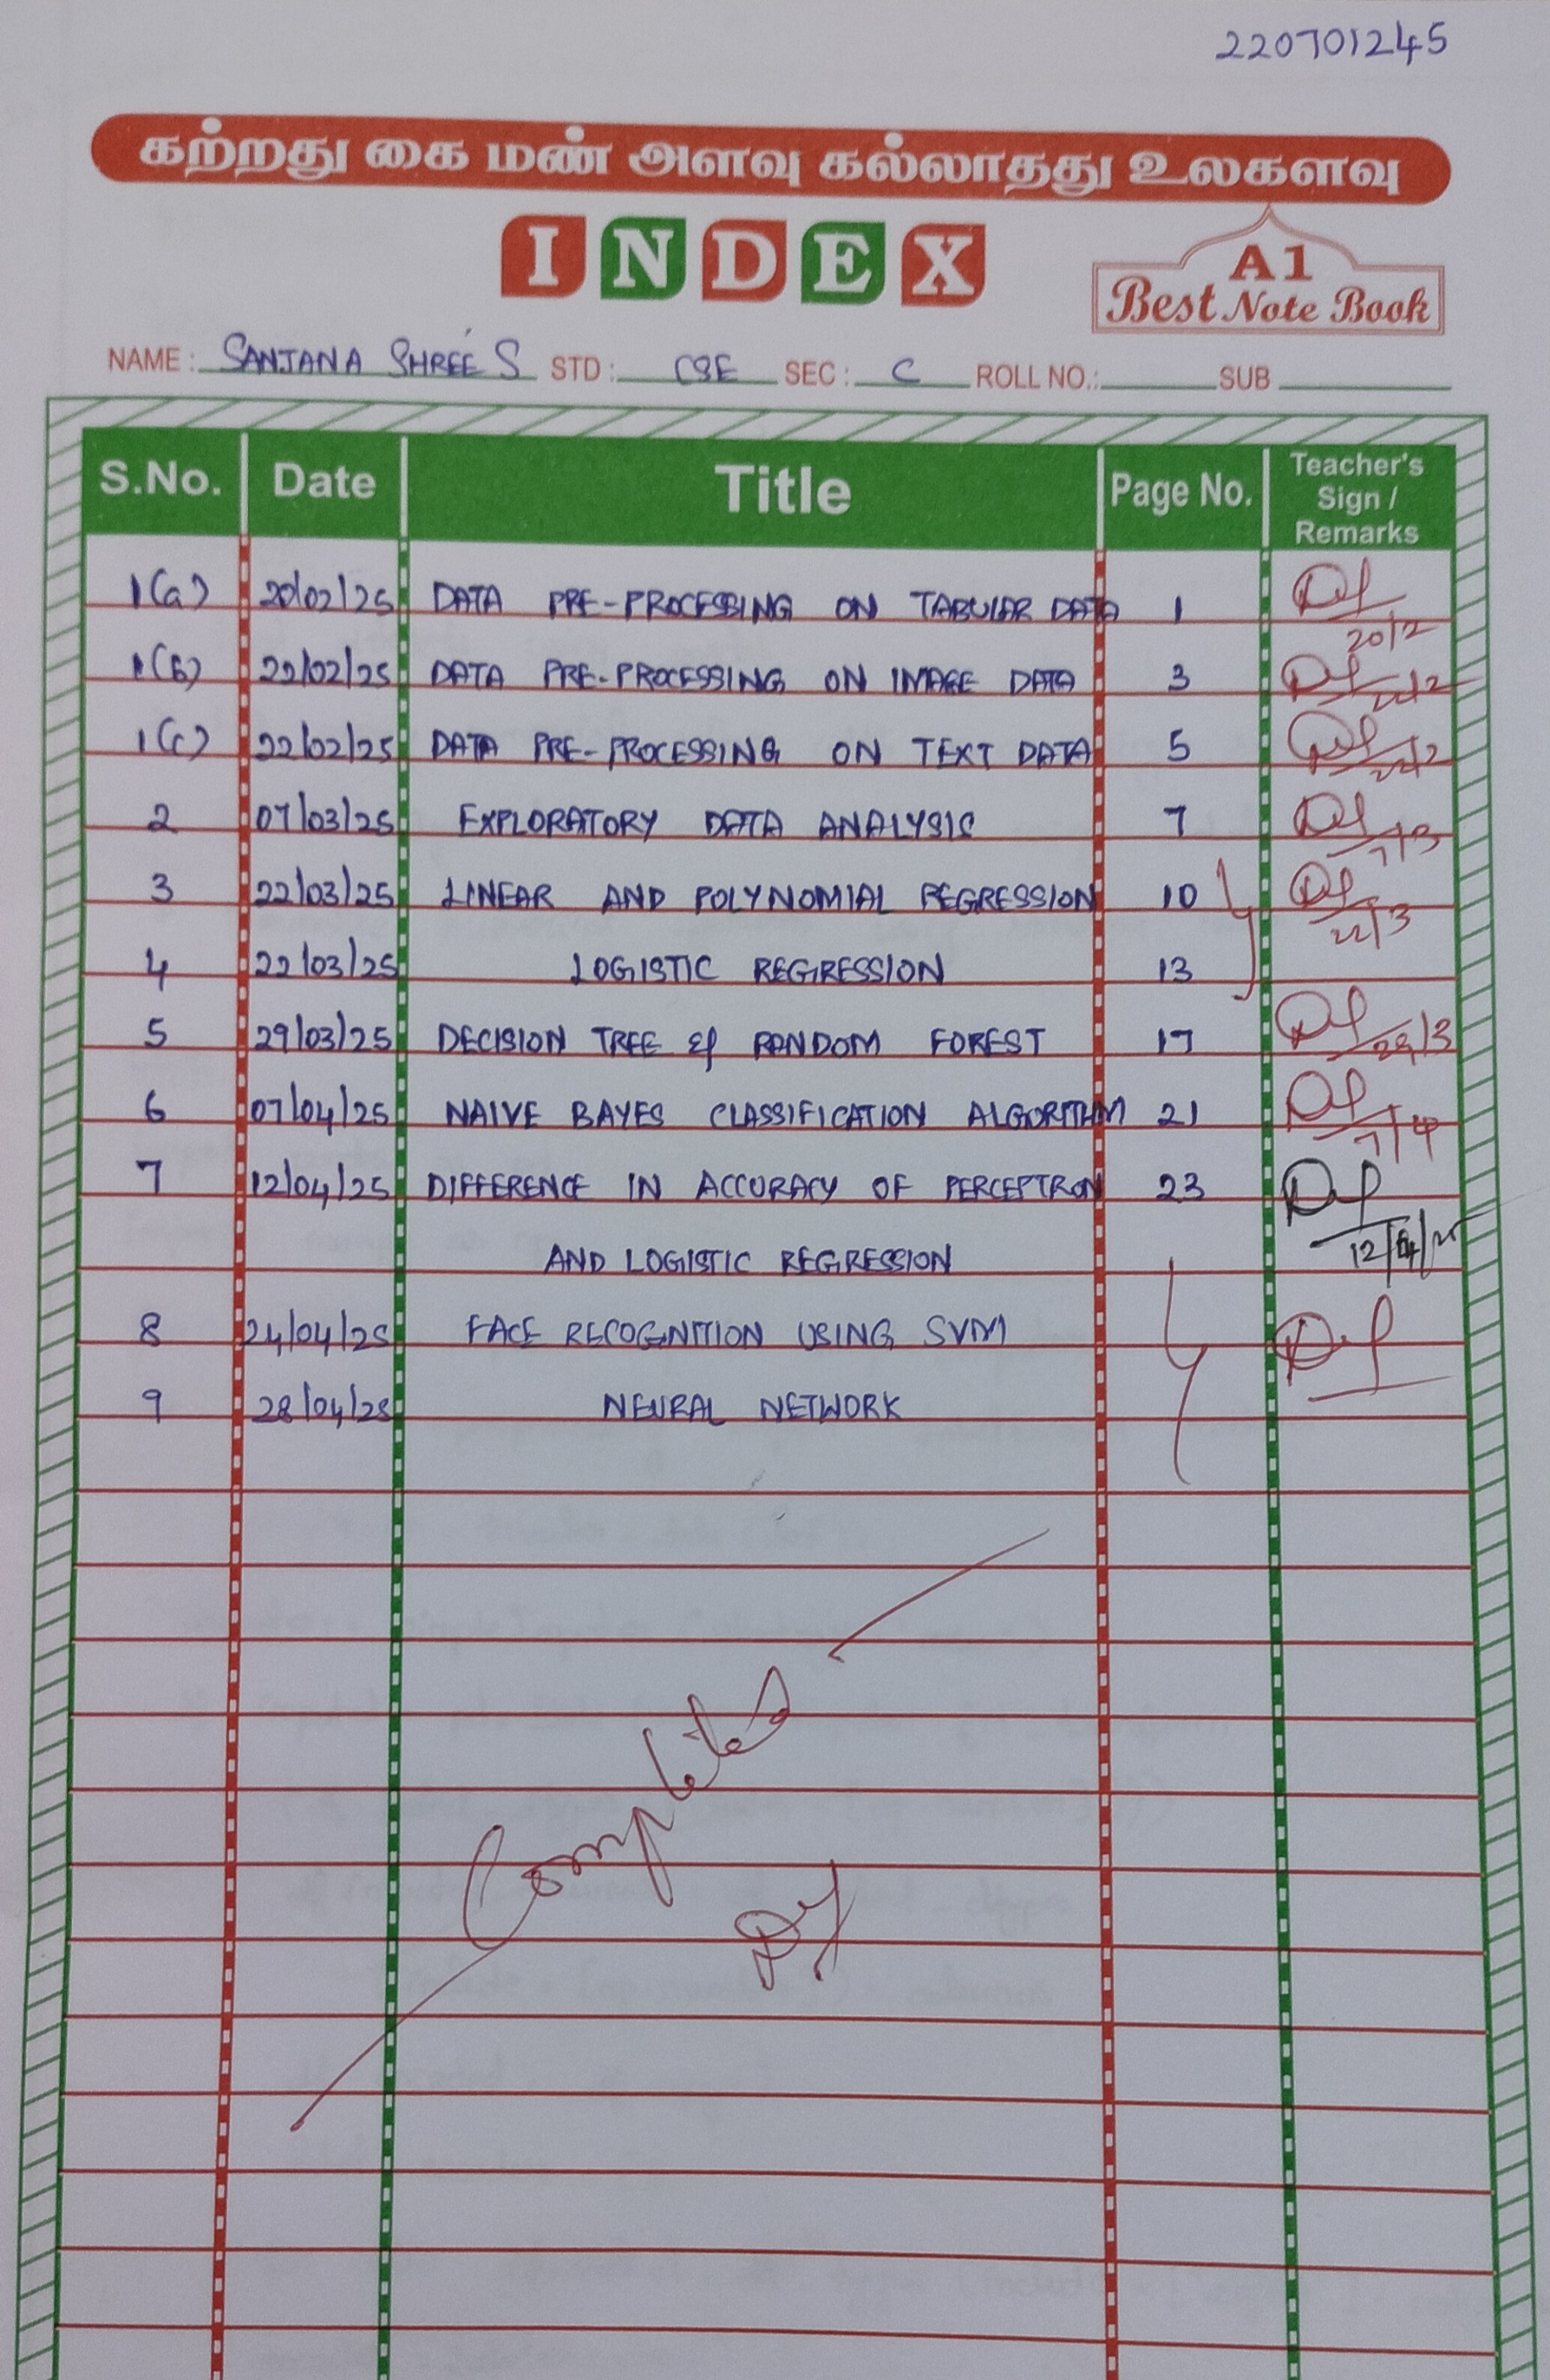 220701245
கற்றது கை மண் அளவு கல்லாதது உலகளவு
INDEX
A1
Best Note Book
NAME: SANJANA SHREE S STD: CSE SEC: C ROLL NO.: SUB
S.No. Date Title Page No. Teacher's Sign / Remarks
1(a) 20/02/25 DATA PRE-PROCESSING ON TABULAR DATA 1
20/2
1(b) 22/02/25 DATA PRE-PROCESSING ON IMAGE DATA 3 22/2
1(c) 22/02/25 DATA PRE-PROCESSING ON TEXT DATA 5 22/2
2 07/03/25 EXPLORATORY DATA ANALYSIS 7 7/3
3 22/03/25 LINEAR AND POLYNOMIAL REGRESSION 10 22/3
4 22/03/25 LOGISTIC REGRESSION 13
5 29/03/25 DECISION TREE & RANDOM FOREST 17 29/3
6 07/04/25 NAIVE BAYES CLASSIFICATION ALGORITHM 21 7/4
7 12/04/25 DIFFERENCE IN ACCURACY OF PERCEPTRON 23
AND LOGISTIC REGRESSION 12/4/25
8 24/04/25 FACE RECOGNITION USING SVM
9 28/04/25 NEURAL NETWORK
Completed